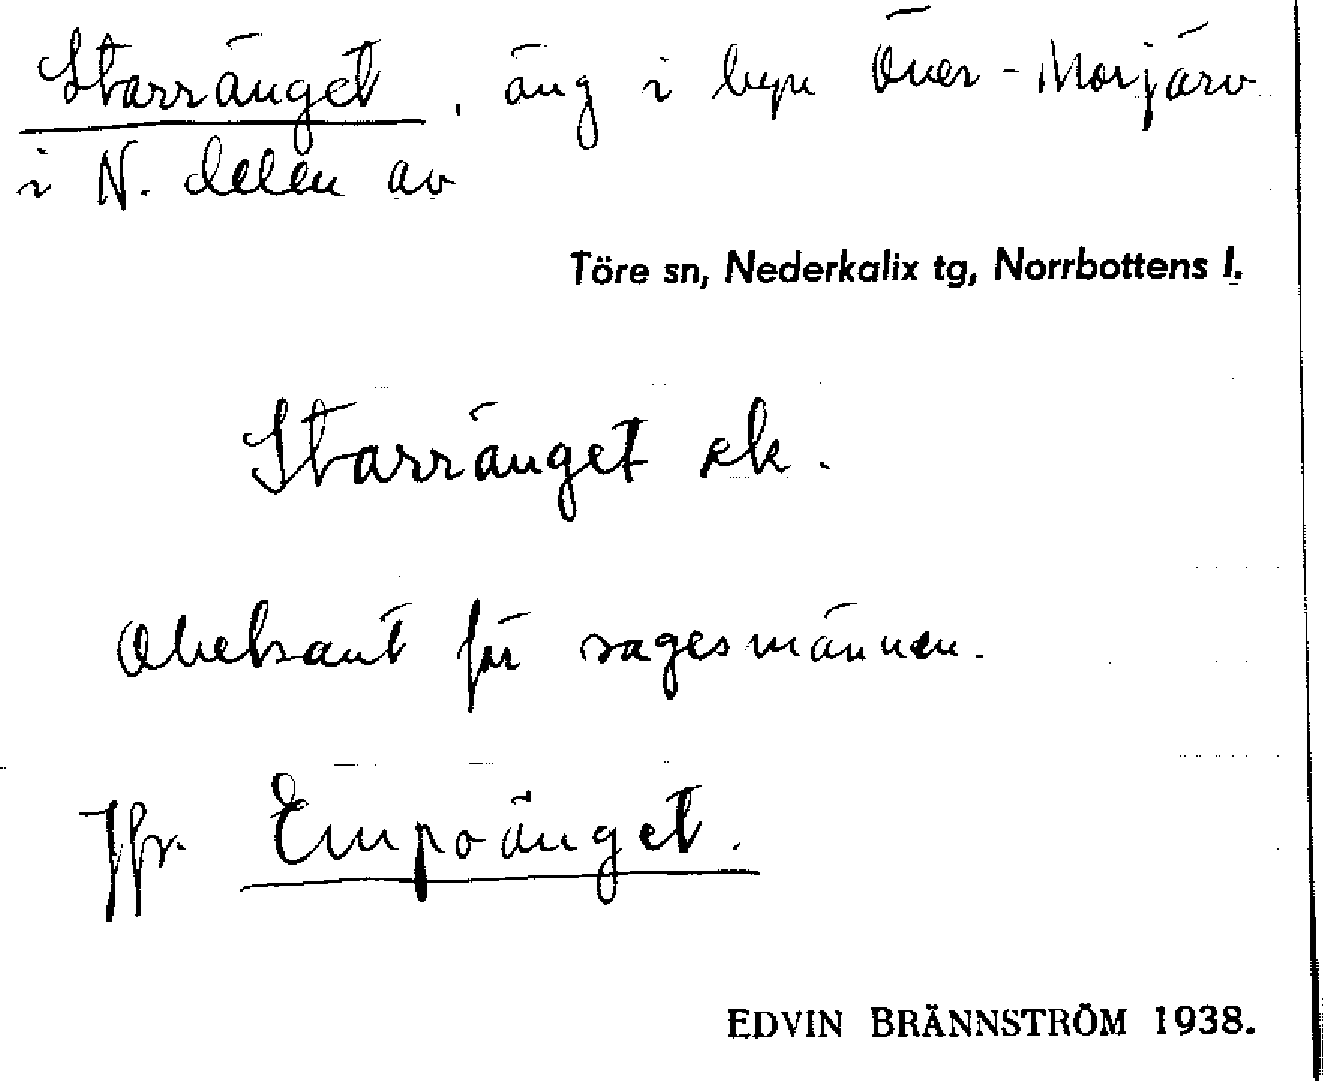 Starränget, äng i byn Över-Morjärv
i N. delen av
Töre sn, Nederkalix tg, Norrbottens l.
Starränget ek.
Obekant för sagesmännen.
Jfr. Empoänget.
EDVIN BRÄNNSTRÖM 1938.